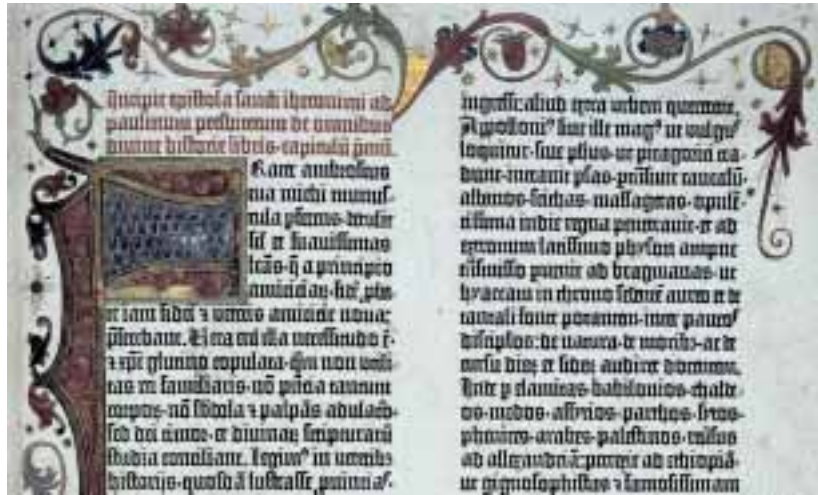 Incipit epistola sancti iheronimi ad
paulinum presbiterum de omnibus
diuine historie libris· capitulū p̄mū.
Rater ambrosius
tua michi munus-
cula pferens· detulit
sil̄ et suauissimas
lr̄as· q̄ a principio
amiciciaꝝ· fidē pba-
te iam fidei ⁊ veteris amicicie noua:
pferebant. Vera eni illa necessitudo ē·
⁊ xp̄i glutino copulata· qm̄ non utili-
tas rei familiaris· nō pn̄tia tantum
corporū· nō sb̄dola ⁊ palpās adulacō·
sed dei timor· et diuinaꝝ scripturarū
studia conciliant. Legimꝰ in veteribꝫ
historijs· quosdā lustrasse. puīcias·
ingressꝰ aliud extra urbem quererent.
Appolloniꝰ siue ille magꝰ ut vulgꝰ
loquitur· siue phūs· ut pitagorici tra-
dunt· intrauit psas· ptrāsiuit caucasū·
albanos· scithas· massagetas· opulē-
tissima indie regna penetrauit· et ad
extremum latissimo physon amne
trāsmisso puenit ad bragmanas· ut
hyarcam in throno sedentē aureo et de
tantali fonte potantem· inter paucos
discipulos· de natura· de moribꝫ· ac de
cursu dierū et siderū audiret docentem.
Inde p elamitas· babilonios· chalde-
os· medos· assyrios· parthos· syros·
phenices· arabes· palestinos· reusus
ad allexandriā: perrexit ad ethiopiā·
ut gignosophistas ⁊ famosissimam